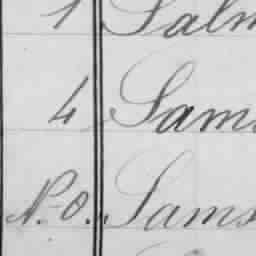 1 Salm
4 Sams
N.O. „ Sams